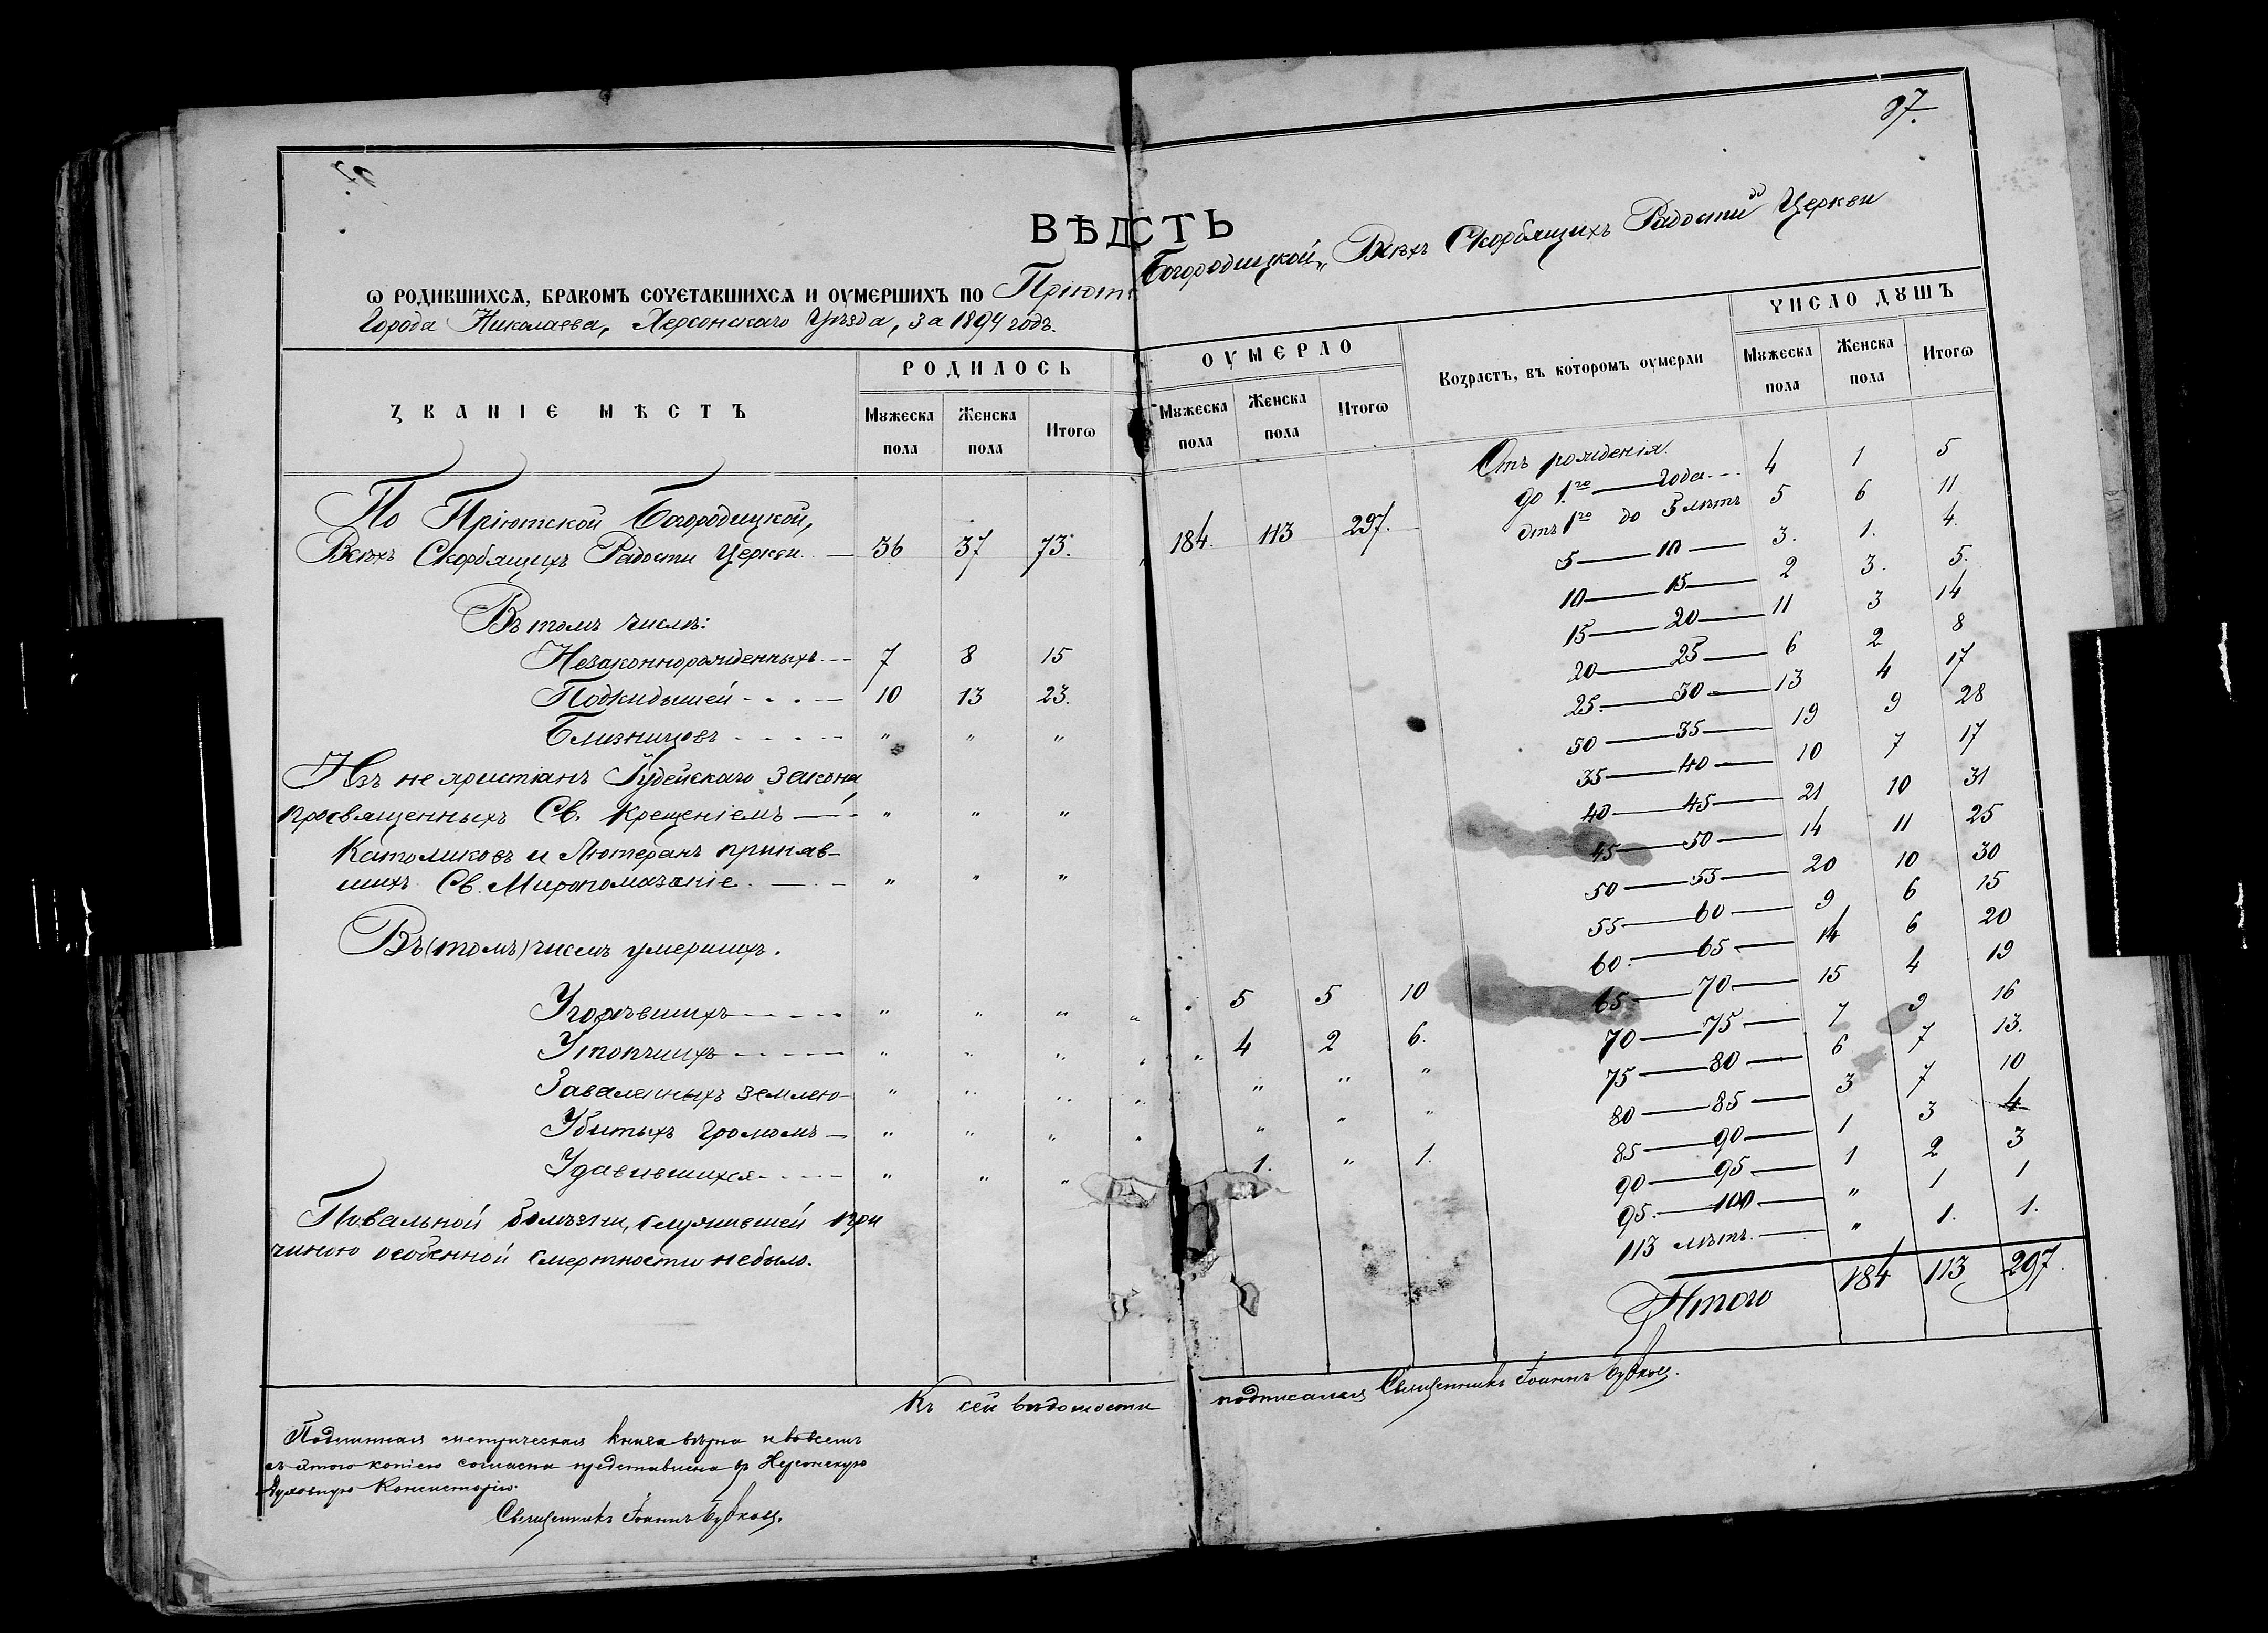 97.
ВѢДСТЬ
Ѡ РОДИВШИХСѦ, БРАКОМЪ СОЧЕТАВШИХСѦ И ОУМЕРШИХЪ ПО Пріют. Богородицкой „Всѣхъ Скорбящихъ Радости“ Церкви
Города Николаева, Херсонскаго Уѣзда, за 1894 годъ.
ЗВАНІЕ МѢСТЪ РОДИЛОСЬ ОУМЕРЛО Возрастъ, въ которомъ оумерли ЧИСЛО ДУШЪ
Мужеска пола Женска пола Итогѡ Мужеска пола Женска пола Итогѡ Мужеска пола Женска пола Итогѡ
По Пріютской Богородицкой,
Всѣхъ Скорбящихъ Радости Церкви. — 36 37 73. " 184. 113 297.
Въ томъ числѣ:
Незаконнорожденныхъ — 7 8 15
Подкидышей - - - — 10 13 23.
Близнецовъ - - - - " " "
Изъ не христіанъ Іудейскаго закона
просвященныхъ Св. Крещеніемъ — " " "
Католиковъ и Лютеранъ приняв-
шихъ Св. Миропомазаніе. — " " "
Въ (томъ) числѣ умершихъ.
Угорѣвшихъ - - - " " " " " 5 5 10
Утопшихъ - - - - " " " " " 4 2 6.
Заваленныхъ землею - " " " " " " "
Убитыхъ громомъ — " " " " " " "
Удавившихся - - - " " " 1. " 1.
Повальной болѣзни, служившей при
чиною особенной смертности небыло.
Отъ рожденія
до 1.го — года — 4 1 5
отъ 1го до 5 лѣтъ 5 6 11
5 — 10 — 3. 1. 4.
10 — 15 — 2 3. 5.
15 — 20 — 11 3 14
20 — 25 — 6 2 8
25. — 30 — 13 4 17
30 — 35 — 19 9 28
35 — 40 — 10 7 17
40 — 45 — 21 10 31
45 — 50 — 14 11 25
50 — 55 — 20 10 30
55 — 60 — 9 6 15
60 — 65 — 14 6 20
65 — 70 — 15 4 19
70 — 75 — 7 9 16
75 — 80 — 6 7 13.
80 — 85 — 3 7 10
85 — 90 — 1 3 4
90 — 95 — 1 2 3
95. — 100 — " 1 1
113 лѣтъ. — " 1. 1.
Итого 184 113 297.
Къ сей вѣдомости подписался Священникъ Іоаннъ
Подлинная метрическая книга вѣрна и во всемъ
съ этою копіею согласна представлена въ Херсонскую
Духовную Консисторію.
Священникъ Іоаннъ